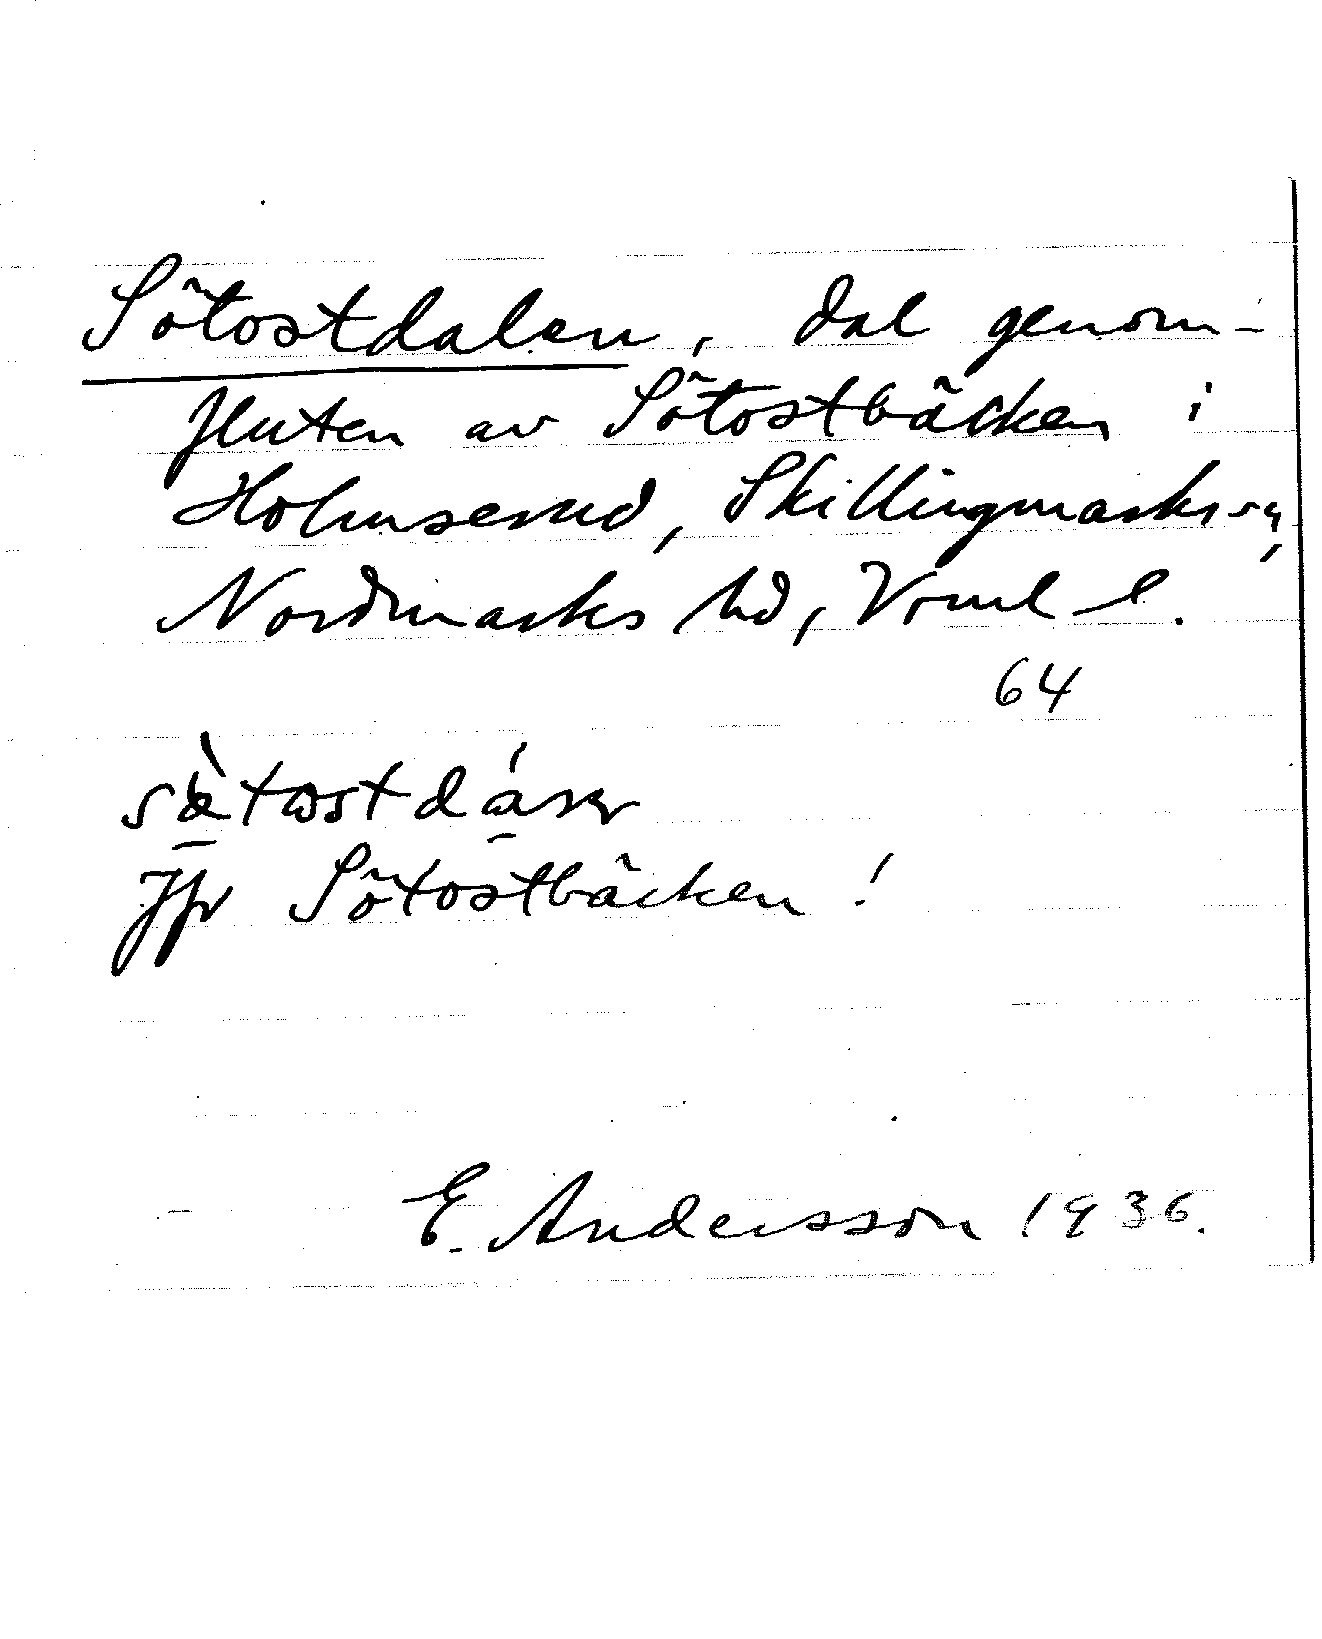 Sötostdalen, dal genom-
fluten av Sötostbäcken i
Holmserud, Skillingmarks sn,
Nordmarks hd, Vrml l.
64
Jfr Sötostbäcken!
E. Andersson 1936.